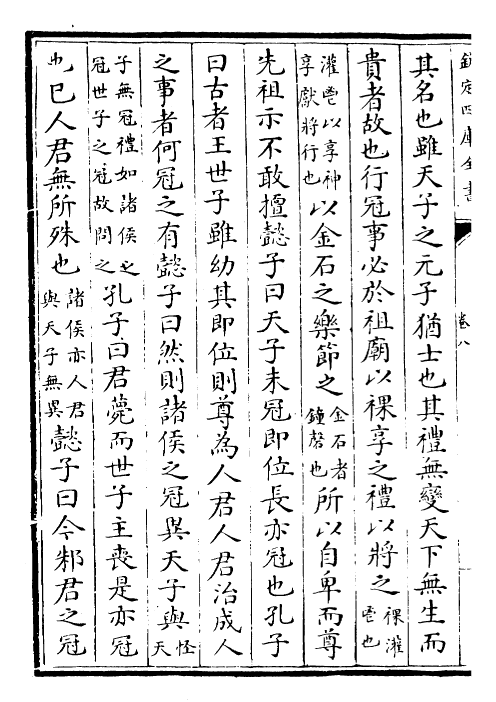 欽定四庫全書
卷八
其名也雖天子之元子猶士也其禮無變天下無生而
貴者故也行冠事必於祖廟以祼享之禮以將之祼灌鬯也
灌鬯以享神享獻將行也以金石之樂節之金石者鐘磬也所以自卑而尊
先祖示不敢擅懿子曰天子未冠即位長亦冠也孔子
曰古者王世子雖幼其即位則尊為人君人君治成人
之事者何冠之有懿子曰然則諸侯之冠異天子與怪天
子無冠禮如諸侯之冠世子之冠故問之孔子曰君薨而世子主喪是亦冠
也已人君無所殊也諸侯亦人君與天子無異懿子曰今邾君之冠